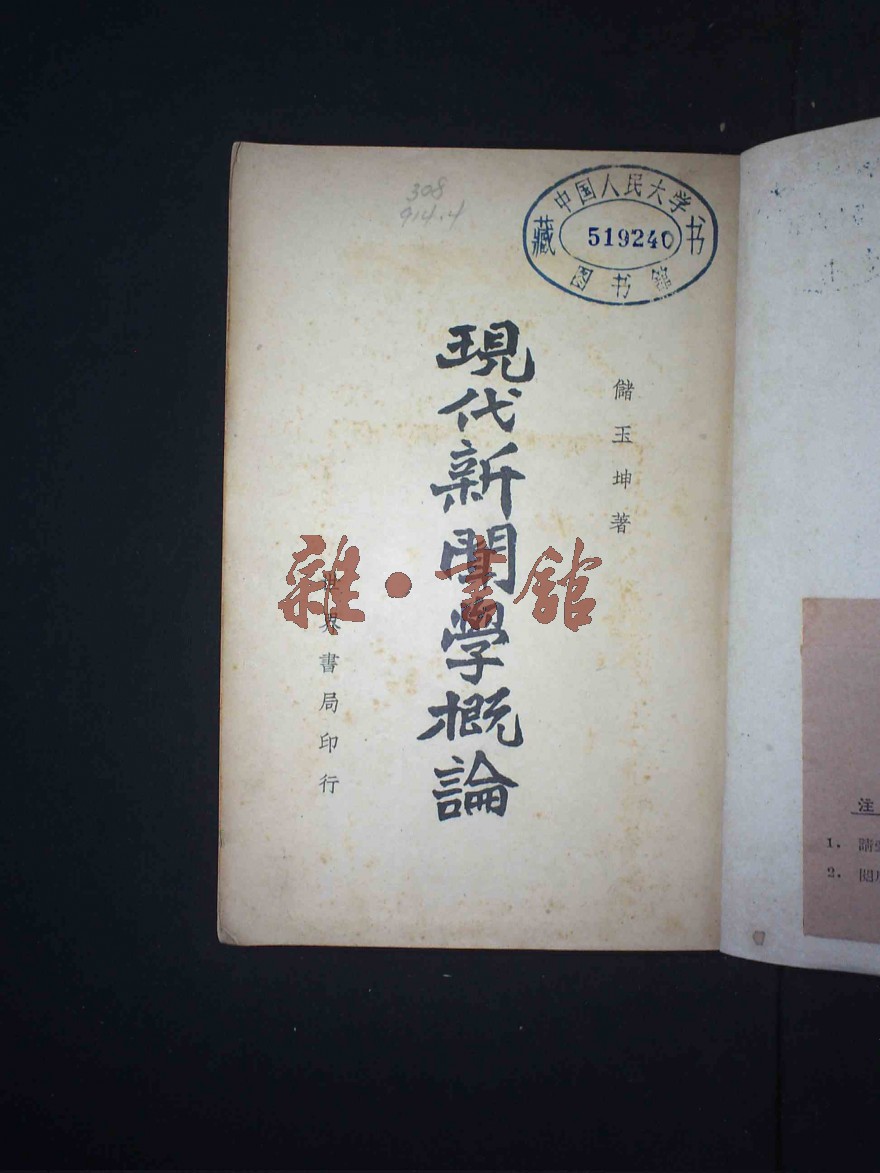 308
914.4
中国人民大学
藏 519240 书
图书馆
儲玉坤著
現代新聞學概論
世界書局印行
雜·書館
注
1. 請
2. 閱